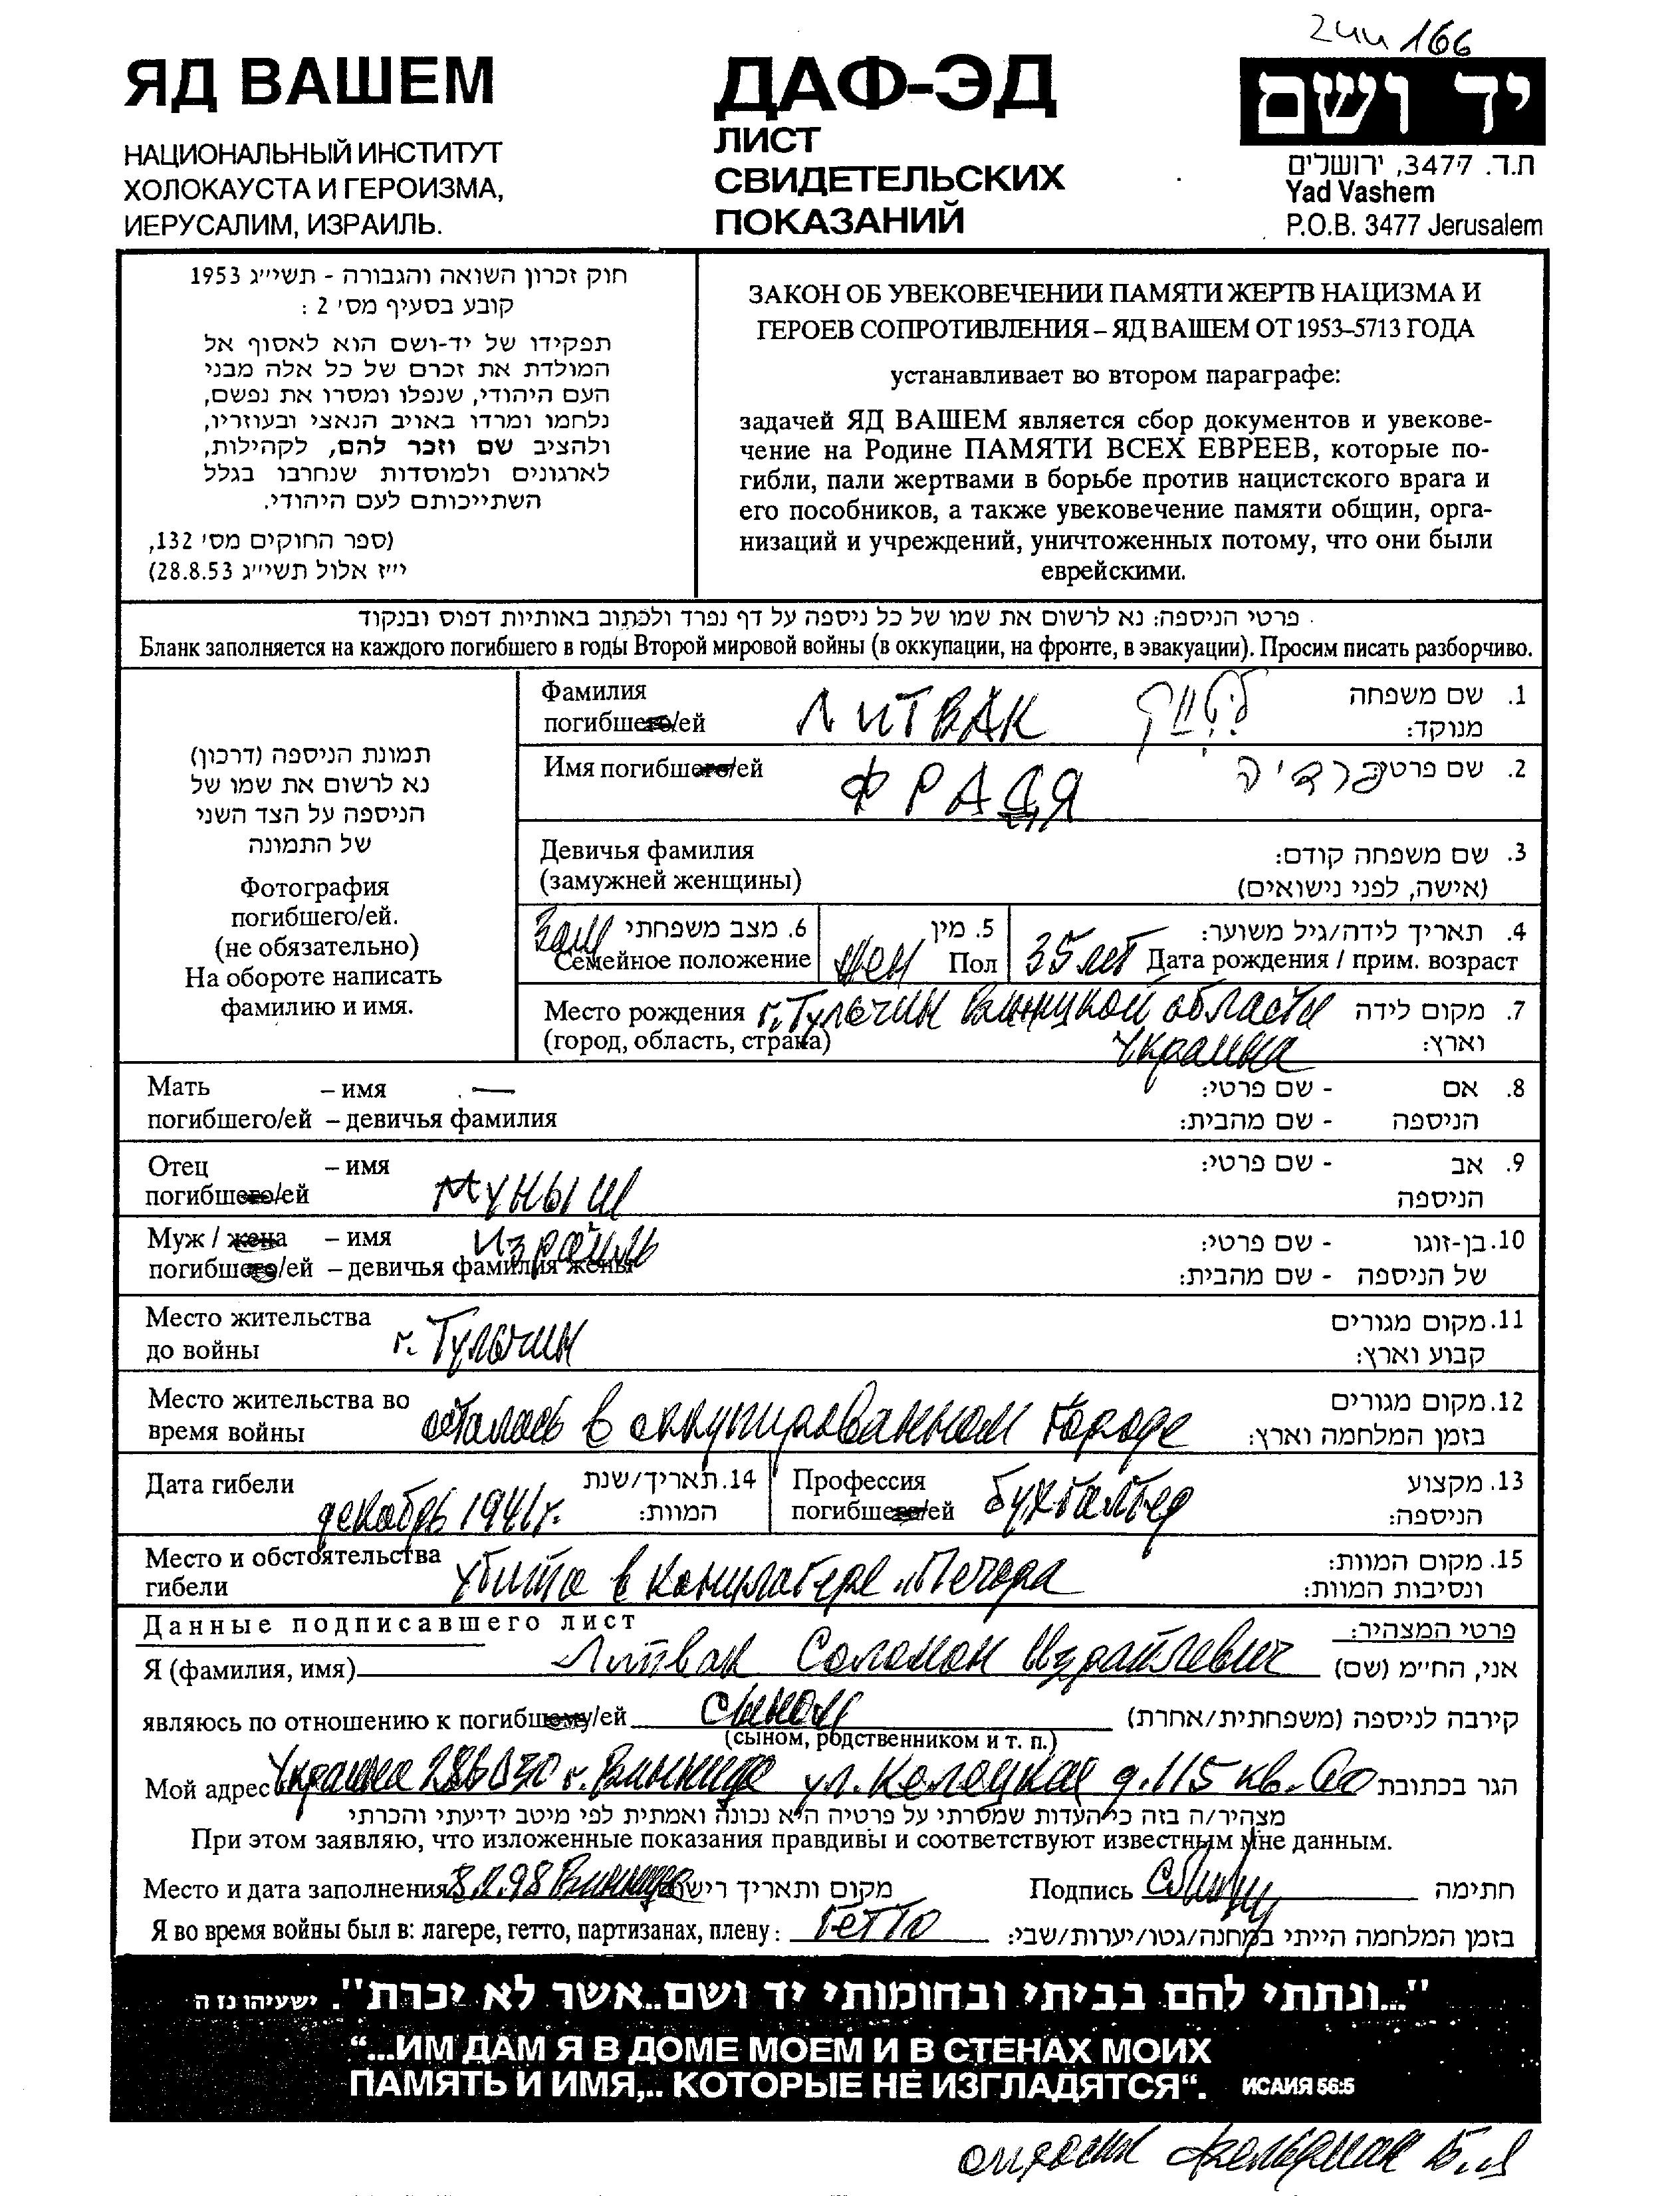 166
ЯД ВАШЕМ
НАЦИОНАЛЬНЫЙ ИНСТИТУТ
ХОЛОКАУСТА И ГЕРОИЗМА,
ИЕРУСАЛИМ, ИЗРАИЛЬ.
ДАФ-ЭД
ЛИСТ
СВИДЕТЕЛЬСКИХ
ПОКАЗАНИЙ
יד ושם
ת.ד. 3477, ירושלים
Yad Vashem
P.O.B. 3477 Jerusalem
חוק זכרון השואה והגבורה - תשי״ג 1953
קובע בסעיף מס׳ 2 :
תפקידו של יד-ושם הוא לאסוף אל
המולדת את זכרם של כל אלה מבני
העם היהודי, שנפלו ומסרו את נפשם,
נלחמו ומרדו באויב הנאצי ובעוזריו,
ולהציב שם וזכר להם, לקהילות,
לארגונים ולמוסדות שנחרבו בגלל
השתייכותם לעם היהודי.
(ספר החוקים מס׳ 132,
י״ז אלול תשי״ג 28.8.53)
ЗАКОН ОБ УВЕКОВЕЧЕНИИ ПАМЯТИ ЖЕРТВ НАЦИЗМА И
ГЕРОЕВ СОПРОТИВЛЕНИЯ – ЯД ВАШЕМ ОТ 1953–5713 ГОДА
устанавливает во втором параграфе:
задачей ЯД ВАШЕМ является сбор документов и увекове-
чение на Родине ПАМЯТИ ВСЕХ ЕВРЕЕВ, которые по-
гибли, пали жертвами в борьбе против нацистского врага и
его пособников, а также увековечение памяти общин, орга-
низаций и учреждений, уничтоженных потому, что они были
еврейскими.
פרטי הניספה: נא לרשום את שמו של כל ניספה על דף נפרד ולכתוב באותיות דפוס ובנקוד
Бланк заполняется на каждого погибшего в годы Второй мировой войны (в оккупации, на фронте, в эвакуации). Просим писать разборчиво.
תמונת הניספה (דרכון)
נא לרשום את שמו של
הניספה על הצד השני
של התמונה
Фотография
погибшего/ей.
(не обязательно)
На обороте написать
фамилию и имя.
Фамилия ЛИТВАК ליטווק 1. שם משפחה
погибшего/ей מנוקד:
Имя погибшего/ей ФРАДЯ פרדיה 2. שם פרטי
Девичья фамилия 3. שם משפחה קודם:
(замужней женщины) (אישה, לפני נישואים)
Зам 6. מצב משפחתי 5. מין 4. תאריך לידה/גיל משוער:
Семейное положение жен Пол 35 лет Дата рождения / прим. возраст
Место рождения г. Тульчин Винницкой области 7. מקום לידה
(город, область, страна) Украина וארץ:
Мать – имя — - שם פרטי: 8. אם
погибшего/ей – девичья фамилия - שם מהבית: הניספה
Отец – имя - שם פרטי: 9. אב
погибшего/ей Муныш הניספה
Муж / жена – имя Израйль - שם פרטי: 10. בן-זוגו
погибшего/ей – девичья фамилия жены - שם מהבית: של הניספה
Место жительства 11. מקום מגורים
до войны г. Тульчин קבוע וארץ:
Место жительства во 12. מקום מגורים
время войны осталась в оккупированном городе בזמן המלחמה וארץ:
Дата гибели 14. תאריך/שנת Профессия 13. מקצוע
декабрь 1941 г. המוות: погибшего/ей бухгалтер הניספה:
Место и обстоятельства 15. מקום המוות:
гибели убита в концлагере „Печора ונסיבות המוות:
Данные подписавшего лист פרטי המצהיר:
Я (фамилия, имя) Литвак Соломон Израйлевич אני, הח״מ (שם)
являюсь по отношению к погибшему/ей сыном קירבה לניספה (משפחתית/אחרת)
(сыном, родственником и т. п.)
Мой адрес Украина г. Винница ул. Келецкая д. 115 кв. 60 הגר בכתובת
מצהיר/ה בזה כי העדות שמסרתי על פרטיה היא נכונה ואמתית לפי מיטב ידיעתי והכרתי
При этом заявляю, что изложенные показания правдивы и соответствуют известным мне данным.
Место и дата заполнения Винница מקום ותאריך Подпись חתימה
Я во время войны был в: лагере, гетто, партизанах, плену: Гетто בזמן המלחמה הייתי במחנה/גטו/יערות/שבי:
"...ונתתי להם בביתי ובחומותי יד ושם..אשר לא יכרת". ישעיהו נז ה
“...ИМ ДАМ Я В ДОМЕ МОЕМ И В СТЕНАХ МОИХ
ПАМЯТЬ И ИМЯ,.. КОТОРЫЕ НЕ ИЗГЛАДЯТСЯ“. ИСАИЯ 56:5
Фельдман Б.